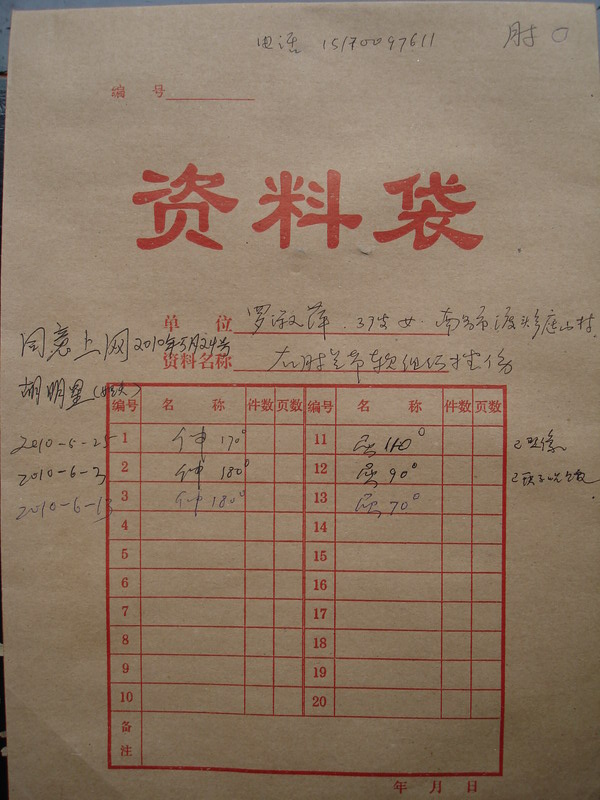 电话 15170097611
肘
编 号
资料袋
单 位 罗淑萍 . 37岁 女 . 南昌市
同意上网 2010年5月24号
资料名称 右肘关节软组织挫伤
胡明星
编号 名 称 件数 页数 编号 名 称 件数 页数
2010-5-25 1 伸 170° 11 屈 110°
2010-6-2 2 伸 180° 12 屈 90°
2010-6-13 3 伸 180° 13 屈 70°
4 14
5 15
6 16
7 17
8 18
9 19
10 20
备注
年 月 日